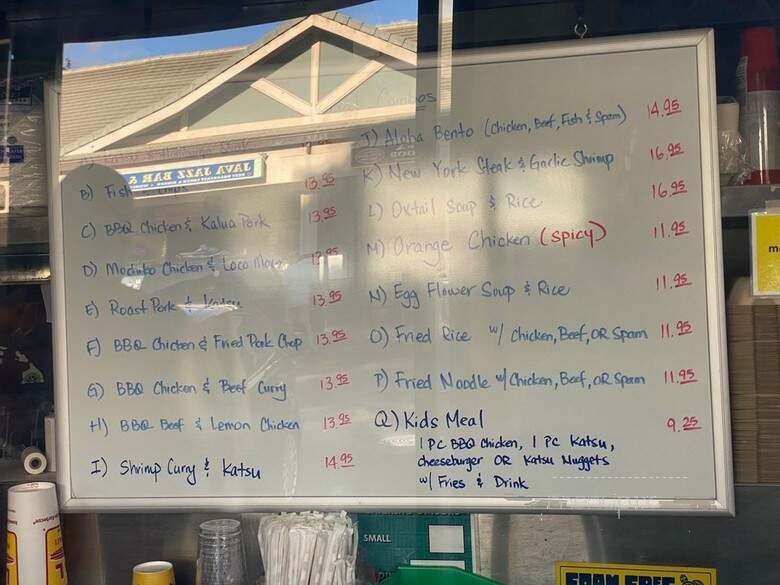 Combos
B) Fish
13.95
C) BBQ Chicken & Kalua Pork 13.95
D) Mochiko Chicken & Loco Moco
E) Roast Pork & Katsu 13.95
F) BBQ Chicken & Fried Pork Chop 13.95
G) BBQ Chicken & Beef Curry 13.95
H) BBQ Beef & Lemon Chicken 13.95
I) Shrimp Curry & Katsu 14.95
J) Aloha Bento (Chicken, Beef, Fish & Spam) 14.95
K) New York Steak & Garlic Shrimp 16.95
L) Oxtail Soup & Rice 16.95
M) Orange Chicken (spicy) 11.95
N) Egg Flower Soup & Rice 11.95
O) Fried Rice w/ Chicken, Beef, OR Spam 11.95
P) Fried Noodle w/ Chicken, Beef, OR Spam 11.95
Q) Kids Meal 9.25
1 PC BBQ Chicken, 1 PC Katsu,
cheeseburger OR Katsu Nuggets
w/ Fries & Drink
JAVA JAZZ BAR &
SMALL
FOAM FREE